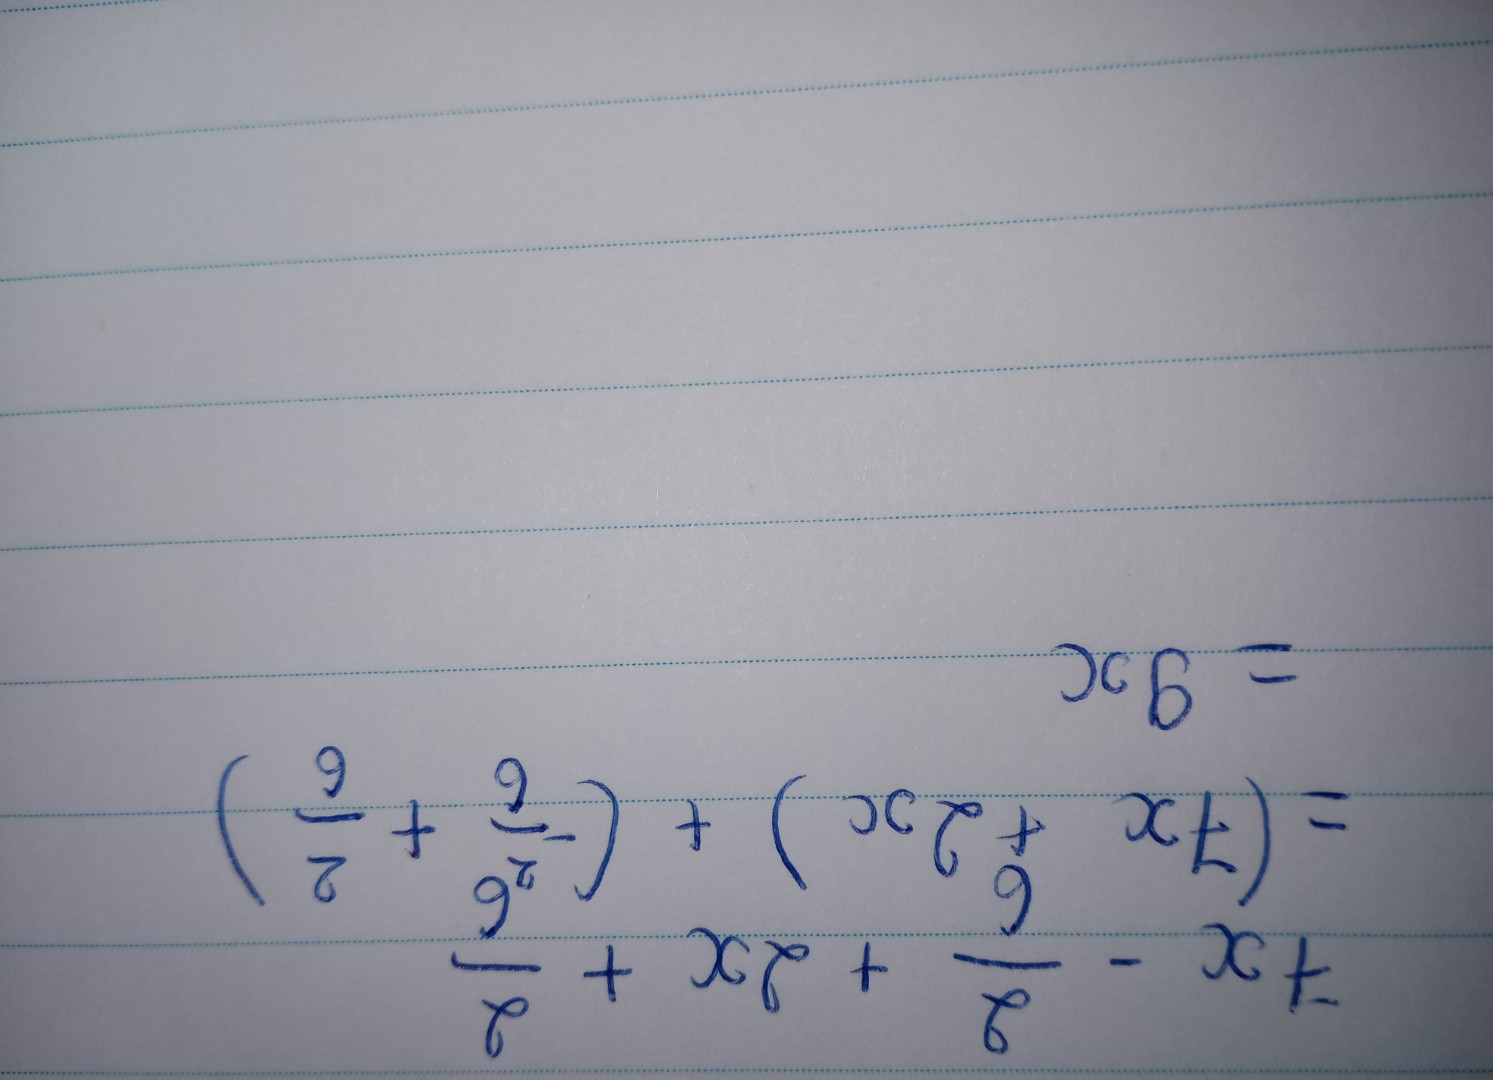 7x - 2/6 + 2x + 2/6
= (7x + 2x) + (-2/6 + 2/6)
= 9x